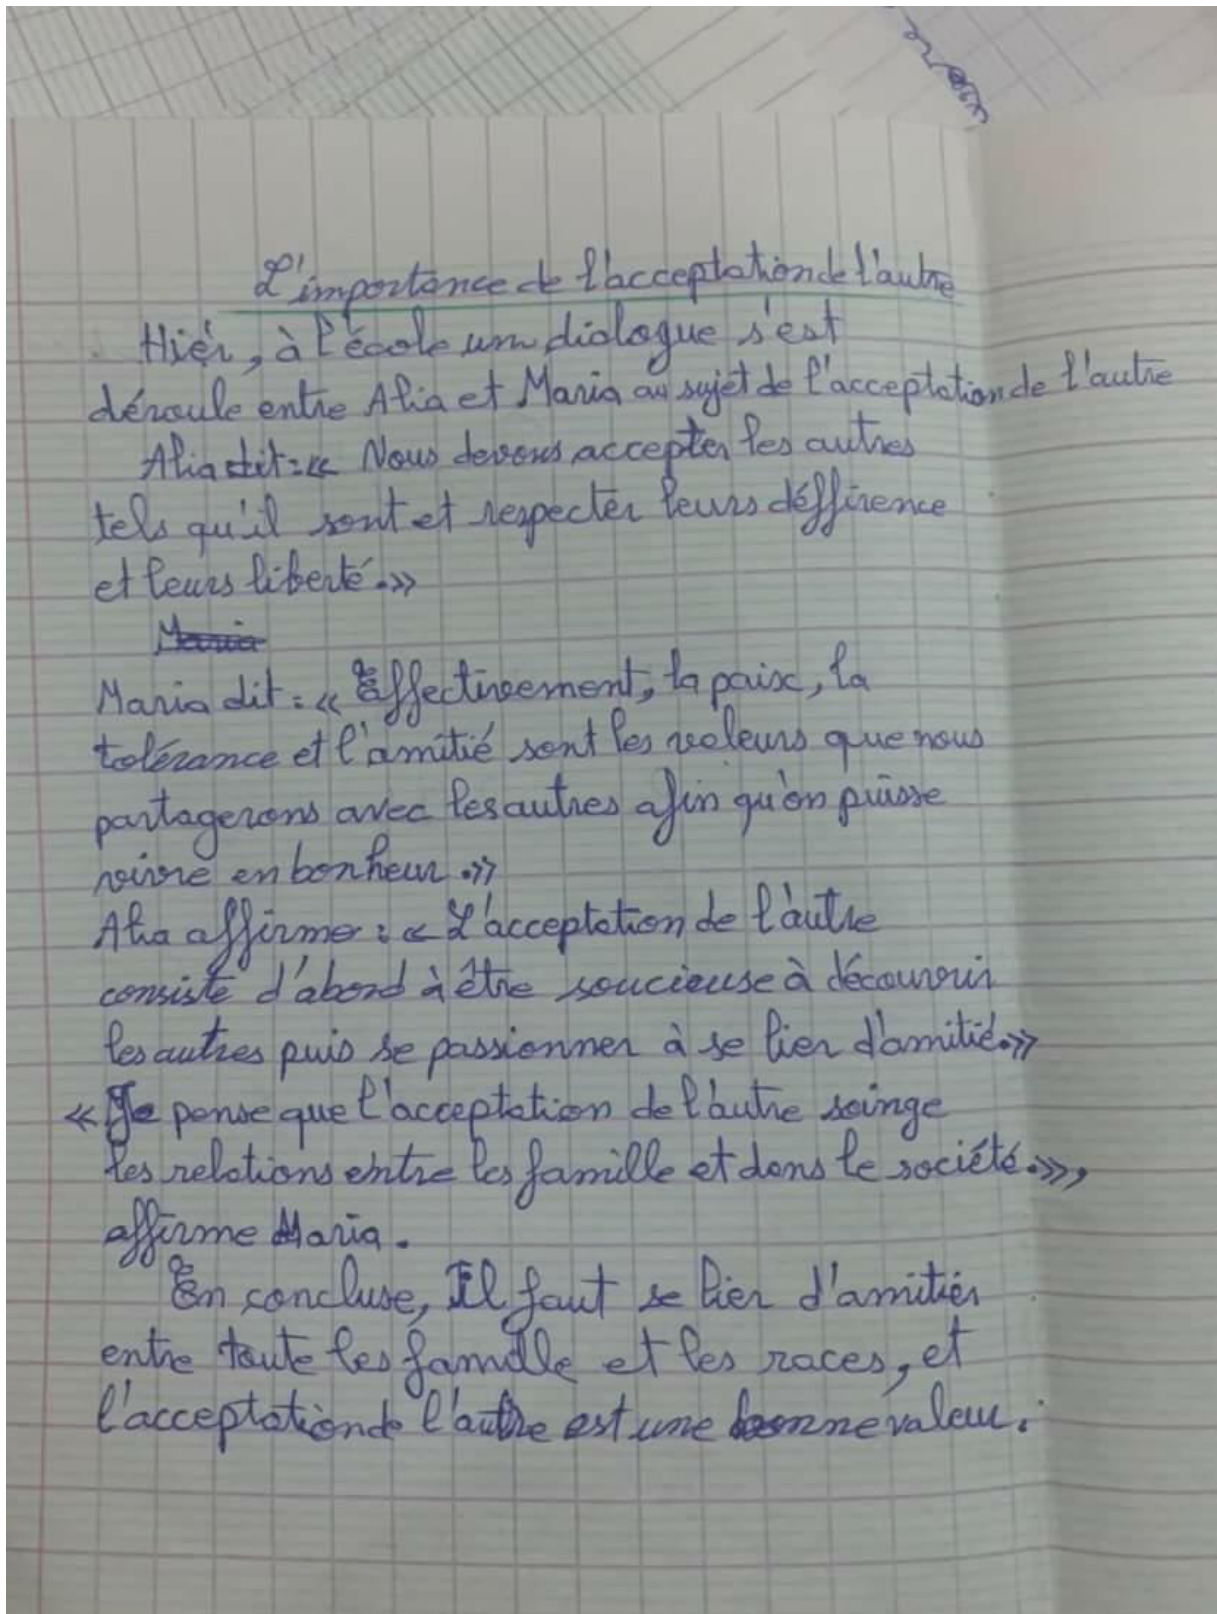 L'importance de l'acceptation de l'autre
Hiér, à l'école un dialogue s'est
déroule entre Alia et Maria au sujet de l'acceptation de l'autre
Alia dit : « Nous devons accepter les autres
tels qu'il sont et respecter leurs défférence
et leurs liberté. »
Maria
Maria dit : « Effectivement, la paix, la
tolérance et l'amitié sont les valeurs que nous
partagerons avec les autres afin qu'on puisse
vivre en bonheur. »
Alia affirme : « L'acceptation de l'autre
consiste d'abord à être soucieuse à découvrir
les autres puis se passionner à se lier d'amitié. »
« Je pense que l'acceptation de l'autre soinge
les relations entre les famille et dans le société. »,
affirme Maria.
En concluse, Il faut se lier d'amitiér
entre toute les famille et les races, et
l'acceptation de l'autre est une bonne valeur.